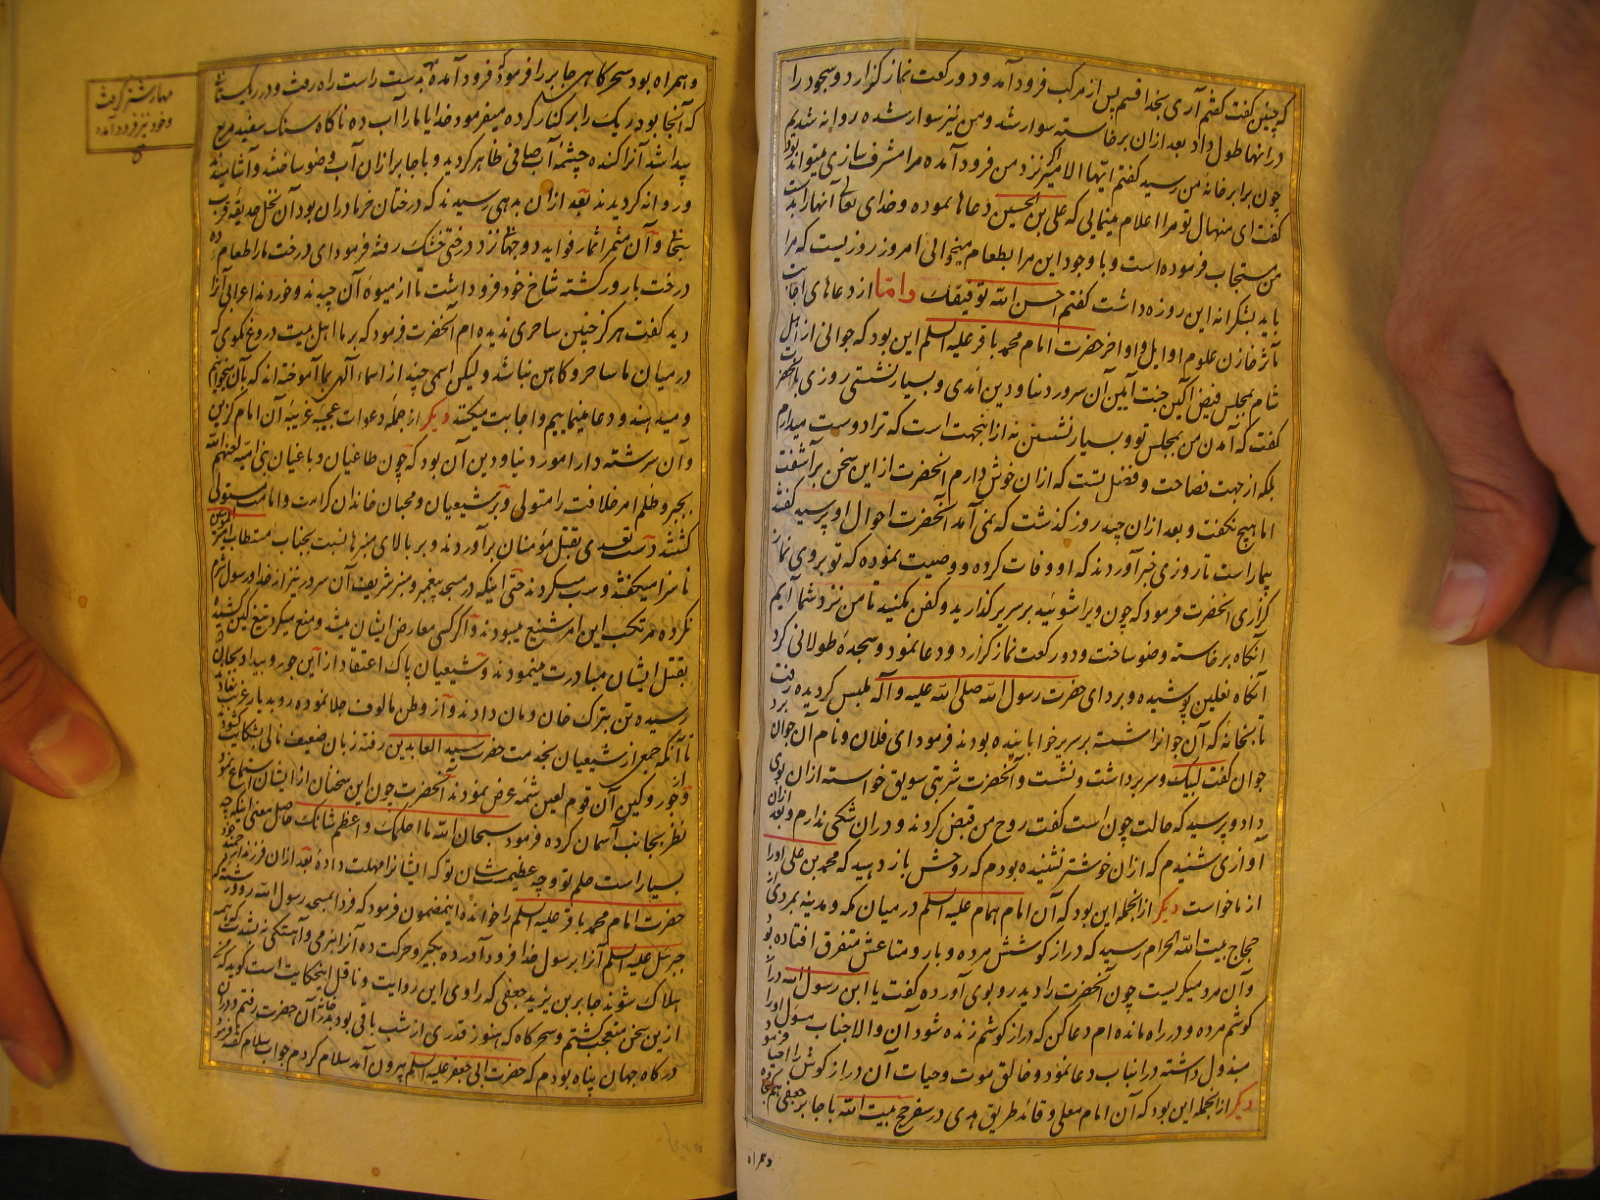 که چنین گفت گفتم آری بخدا قسم پس از مرکب فرود آمد و دو رکعت نماز گزارد و سجود را
در انها طول داد بعد ازان برخاسته سوار شد و من نیز سوار شده روانه شدیم
چون برابر خانۀ من رسید گفتم ایها الامیر اگر نزد من فرود آمده مرا مشرف سازی میتواند بود
گفت ای منهال تو مرا اعلام مینمایی که علی بن الحسین دعاها نموده و خدای تعالی آنها را بدست
من مستجاب فرموده است و با وجود این مرا بطعام میخوانی امروز روزیست که مرا
باید بشکرانه این روزه داشت گفتم احسن الله توفیقک واما از دعاهای اجابت
مآثر خازن علوم اوایل و اواخر حضرت امام محمد باقر علیه السلم این بود که جوانی از اهل
شام بمجلس فیض آکین جنت آیین آن سرور دنیا و دین آمدی و بسیار نشستی روزی بآنحضرت
گفت که آمدن من بمجلس تو و بسیار نشستن نه از اینجهت است که ترا دوست میدارم
بلکه از جهت فصاحت و فضل تست که ازان خوش دارم آنحضرت از این سخن برآشفت
اما هیچ نگفت و بعد ازان چند روز گذشت که نمی آمد آنحضرت احوال او پرسید گفتند
بیمار است تا روزی خبر آوردند که او وفات کرده و وصیت نموده که تو بر وی نماز
گزاری آنحضرت فرمود که چون ویرا شوئید بر سریر گذارید و کفن مکنید تا من نزد شما آیم
آنگاه برخاسته وضو ساخت و دو رکعت نماز گزارد و دعا نمود و سجدۀ طولانی کرد
آنگاه نعلین پوشیده و بردای حضرت رسول الله صلی الله علیه و آله ملبس گردیده رفت
تا بخانۀ که آن جوانرا شسته بر سریر خوابانیده بودند فرمود ای فلان و نام آن جوان برد
جوان گفت لبیک و سر برداشت و نشست و آنحضرت شربتی سویق خواسته ازان بوی
داد و پرسید که حالت چون است گفت روح من قبض کردند و دران شکی ندارم و بعد ازان
آوازی شنیدم که ازان خوشتر نشنیده بودم که روحش باز دهید که محمد بن علی او را
از ما خواست دیگر ازانجمله این بود که آن امام همام علیه السلم در میان مکه و مدینه بمردی از
حجاج بیت الله الحرام رسید که دراز کوشش مرده و بار و متاعش متفرق افتاده بود
و آن مرد میکریست چون آنحضرت را دید رو بوی آورده گفت یا ابن رسول الله دراز
کوشم مرده و در راه مانده ام دعا کن که دراز کوشم زنده شود آن والاجناب مسول او را
مبذول داشته در انباب دعا نمود و خالق موت و حیات آن دراز کوش را احیا فرمود
دیگر ازانجمله این بود که آن امام معلی و قائد طریق هدی در سفر حج بیت الله با جابر جعفی هم کجاوه
و همراه
و همراه بود سحرگاهی جابر را فرمود که فرود آمده بدست راست راه رفت و در ریکستان
که آنجا بود ریک را بر کنار کرده میفرمود خدایا ما را آب ده ناگاه سنگ سفید مربع
پیدا شد آنرا کنده چشمۀ آب صافی ظاهر گردید و با جابر ازان آب وضو ساختند و آشامیدند
و روانه گردیدند بعد ازان به دهی رسیدند که درختان خرما دران بود آن نخل حدیقه قرب
و آن مثمر اثمار فواید دو جهان نزد درختی خشک رفته فرمود ای درخت ما را طعام ده
درخت بارور گشته شاخ خود فرود داشت تا از میوۀ آن چیدند و خوردند اعرابی آنرا
دید گفت هرگز چنین ساحری ندیده ام آنحضرت فرمود که بر ما اهل بیت دروغ مگوی که
در میان ما ساحر و کاهن نباشد ولیکن اسمی چند از اسماء آلهی بما آموخته اند که بآن میخواهیم
و میدهند و دعا مینماییم و اجابت میکنند دیگر از جملۀ دعوات عجیبه غریبۀ آن امام گزین
و آن سررشته دار امور دنیا و دین آن بود که چون طاغیان و باغیان بنی امیه لعنهم الله
بجبر و ظلم امر خلافت را متولی و بر شیعیان و محبان خاندان کرامت و امامت مستولی
گشتند دست تعدی بقتل مؤمنان برآوردند و بر بالای منبرها نسبت بجناب مستطاب امیر المؤمنین
ناسزا میگفتند و سب میکردند حتی اینکه در مسجد پیغمبر و منبر شریف آن سرور نیز از خدا و رسول شرم
نکرده مرتکب این امر شنیع میبودند و اگر کسی معارض ایشان میشد و منع میکرد تیغ کین کشیده
بقتل ایشان مبادرت مینمودند و شیعیان پاک اعتقاد از این جور و بیداد بجان
رسیده تن بترک خان و مان دادند و از وطن مالوف جلا نموده رو بدیار غربت نهادند
تا آنکه جمعی از شیعیان بخدمت حضرت سید العابدین رفته زبان ضعیف نالی بشکایت گشودند
و از جور و کین آن قوم لعین شمۀ عرض نمودند آنحضرت چون این سخنان از ایشان استماع نمود
نظر بجانب آسمان کرده فرمود سبحان الله ما احلمک و اعظم شانک حاصل معنی اینکه چه
بسیار است حلم تو و چه عظیمست شان تو که ایشانرا مهلت دادۀ بعد ازان فرزند ارجمند خود
حضرت امام محمد باقر علیه السلم را خوانده اینمضمون فرمود که فردا بمسجد رسول الله رو و رشته که
جبرئیل علیه السلم آنرا بر رسول خدا فرود آورده بگیر و حرکت ده آنرا بنرمی و آهستگی نه بشدت که همه
هلاک شوند جابر بن یزید جعفی که راوی این روایت و ناقل اینحکایت است گوید که من
ازین سخن متعجب گشتم و سحرگاه که هنوز قدری از شب باقی بود بدر خانۀ آن حضرت رفتم و دران
درگاه جهان پناه بودم که حضرت ابی جعفر علیه السلم بیرون آمد سلام کردم جواب سلام گفته فرمود
مهار شتر گرفت
و خود نیز فرود آمده